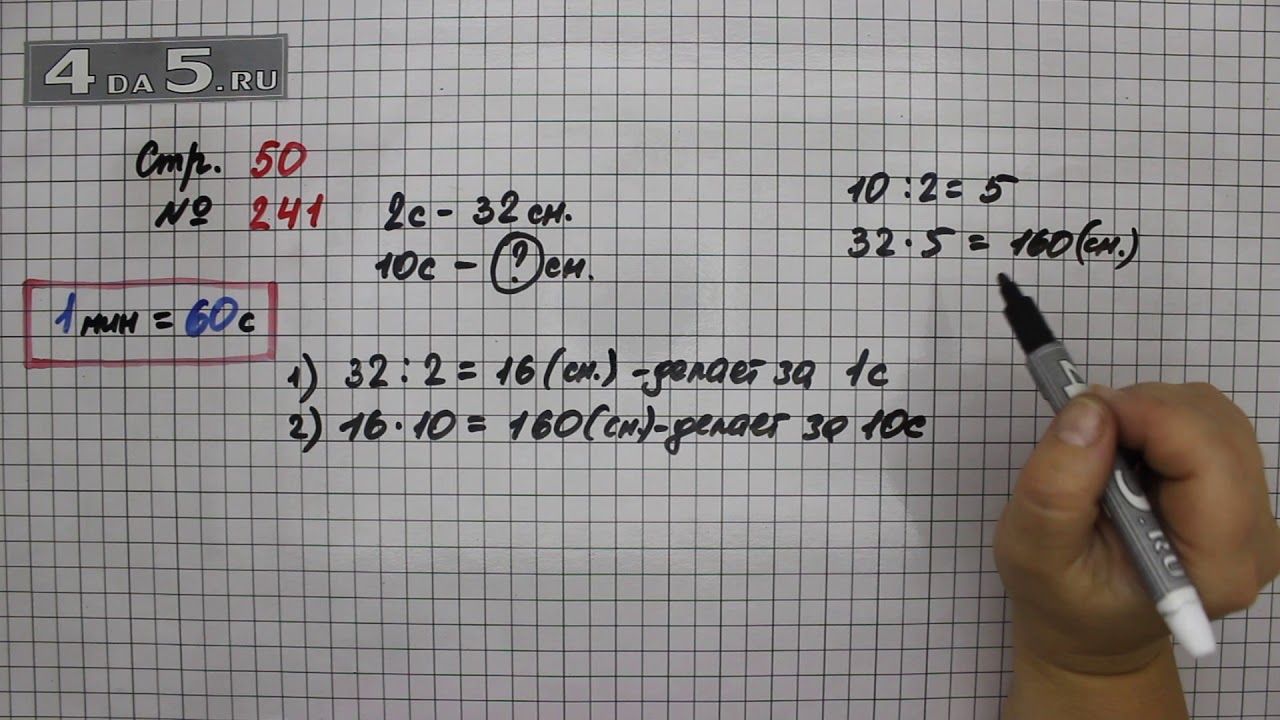 4 DA 5.RU
Стр. 50
№ 241
2с - 32 сн.
10с - ? сн.
10 : 2 = 5
32 · 5 = 160 (сн.)
1 мин = 60 с
1) 32 : 2 = 16 (сн.) - делает за 1с
2) 16 · 10 = 160 (сн.) - делает за 10с
.RU